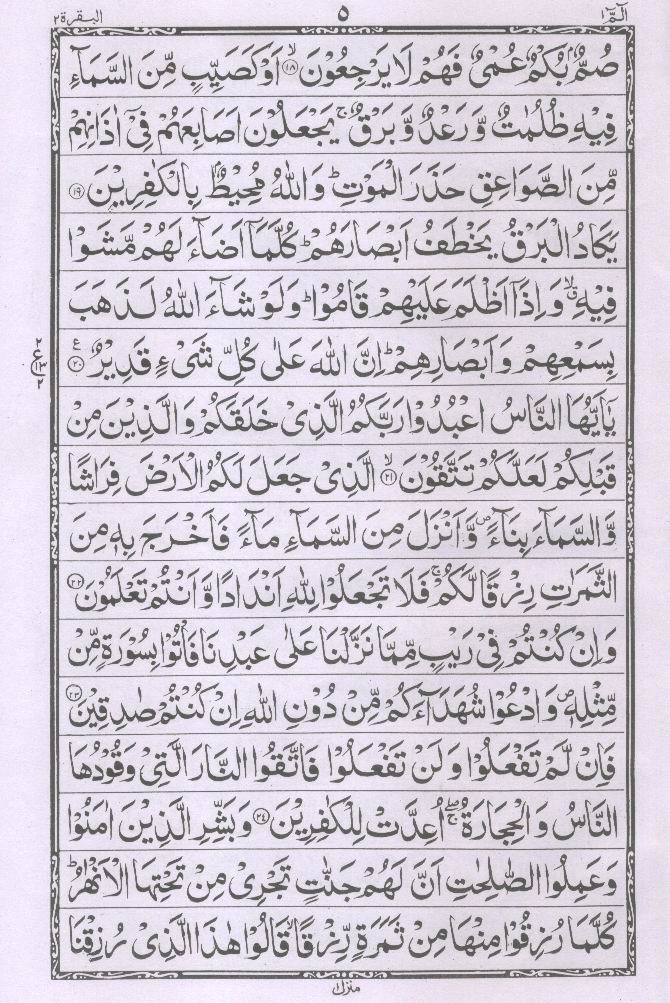 الٓمّٓ ١ ٥ البقرة ٢
صُمٌّۢ بُكْمٌ عُمْیٌ فَهُمْ لَا یَرْجِعُوْنَ ۙ﴿۱۸﴾ اَوْ كَصَیِّبٍ مِّنَ السَّمَآءِ
فِیْهِ ظُلُمٰتٌ وَّ رَعْدٌ وَّ بَرْقٌ ۚ یَجْعَلُوْنَ اَصَابِعَهُمْ فِیْۤ اٰذَانِهِمْ
مِّنَ الصَّوَاعِقِ حَذَرَ الْمَوْتِ ؕ وَ اللّٰهُ مُحِیْطٌۢ بِالْكٰفِرِیْنَ ﴿۱۹﴾
یَكَادُ الْبَرْقُ یَخْطَفُ اَبْصَارَهُمْ ؕ كُلَّمَاۤ اَضَآءَ لَهُمْ مَّشَوْا
فِیْهِ ۙۗ وَ اِذَاۤ اَظْلَمَ عَلَیْهِمْ قَامُوْا ؕ وَ لَوْ شَآءَ اللّٰهُ لَذَهَبَ
بِسَمْعِهِمْ وَ اَبْصَارِهِمْ ؕ اِنَّ اللّٰهَ عَلٰی كُلِّ شَیْءٍ قَدِیْرٌ ﴿۲۰﴾ ع
٢ ع ١٣ ٢
یٰۤاَیُّهَا النَّاسُ اعْبُدُوْا رَبَّكُمُ الَّذِیْ خَلَقَكُمْ وَ الَّذِیْنَ مِنْ
قَبْلِكُمْ لَعَلَّكُمْ تَتَّقُوْنَ ۙ﴿۲۱﴾ الَّذِیْ جَعَلَ لَكُمُ الْاَرْضَ فِرَاشًا
وَّ السَّمَآءَ بِنَآءً ۪ وَّ اَنْزَلَ مِنَ السَّمَآءِ مَآءً فَاَخْرَجَ بِهٖ مِنَ
الثَّمَرٰتِ رِزْقًا لَّكُمْ ۚ فَلَا تَجْعَلُوْا لِلّٰهِ اَنْدَادًا وَّ اَنْتُمْ تَعْلَمُوْنَ ﴿۲۲﴾
وَ اِنْ كُنْتُمْ فِیْ رَیْبٍ مِّمَّا نَزَّلْنَا عَلٰی عَبْدِنَا فَاْتُوْا بِسُوْرَةٍ مِّنْ
مِّثْلِهٖ ۪ وَ ادْعُوْا شُهَدَآءَكُمْ مِّنْ دُوْنِ اللّٰهِ اِنْ كُنْتُمْ صٰدِقِیْنَ ﴿۲۳﴾
فَاِنْ لَّمْ تَفْعَلُوْا وَ لَنْ تَفْعَلُوْا فَاتَّقُوا النَّارَ الَّتِیْ وَقُوْدُهَا
النَّاسُ وَ الْحِجَارَةُ ۖۚ اُعِدَّتْ لِلْكٰفِرِیْنَ ﴿۲۴﴾ وَ بَشِّرِ الَّذِیْنَ اٰمَنُوْا
وَ عَمِلُوا الصّٰلِحٰتِ اَنَّ لَهُمْ جَنّٰتٍ تَجْرِیْ مِنْ تَحْتِهَا الْاَنْهٰرُ ؕ
كُلَّمَا رُزِقُوْا مِنْهَا مِنْ ثَمَرَةٍ رِّزْقًا ۙ قَالُوْا هٰذَا الَّذِیْ رُزِقْنَا
منزل ١